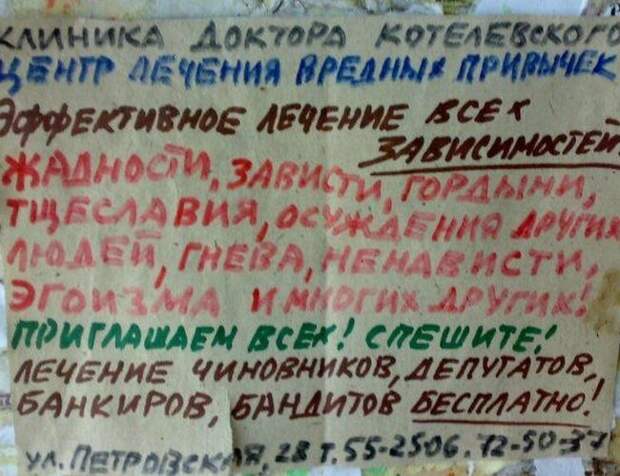 КЛИНИКА ДОКТОРА КОТЕЛЕВСКОГО
ЦЕНТР ЛЕЧЕНИЯ ВРЕДНЫХ ПРИВЫЧЕК
ЭФФЕКТИВНОЕ ЛЕЧЕНИЕ ВСЕХ
ЗАВИСИМОСТЕЙ:
ЖАДНОСТИ, ЗАВИСТИ, ГОРДЫНИ,
ТЩЕСЛАВИЯ, ОСУЖДЕНИЯ ДРУГИХ
ЛЮДЕЙ, ГНЕВА, НЕНАВИСТИ,
ЭГОИЗМА И МНОГИХ ДРУГИХ!
ПРИГЛАШАЕМ ВСЕХ! СПЕШИТЕ!
ЛЕЧЕНИЕ ЧИНОВНИКОВ, ДЕПУТАТОВ,
БАНКИРОВ, БАНДИТОВ БЕСПЛАТНО!
УЛ. ПЕТРОВСКАЯ, 28 Т. 55-2506. 72-50-37